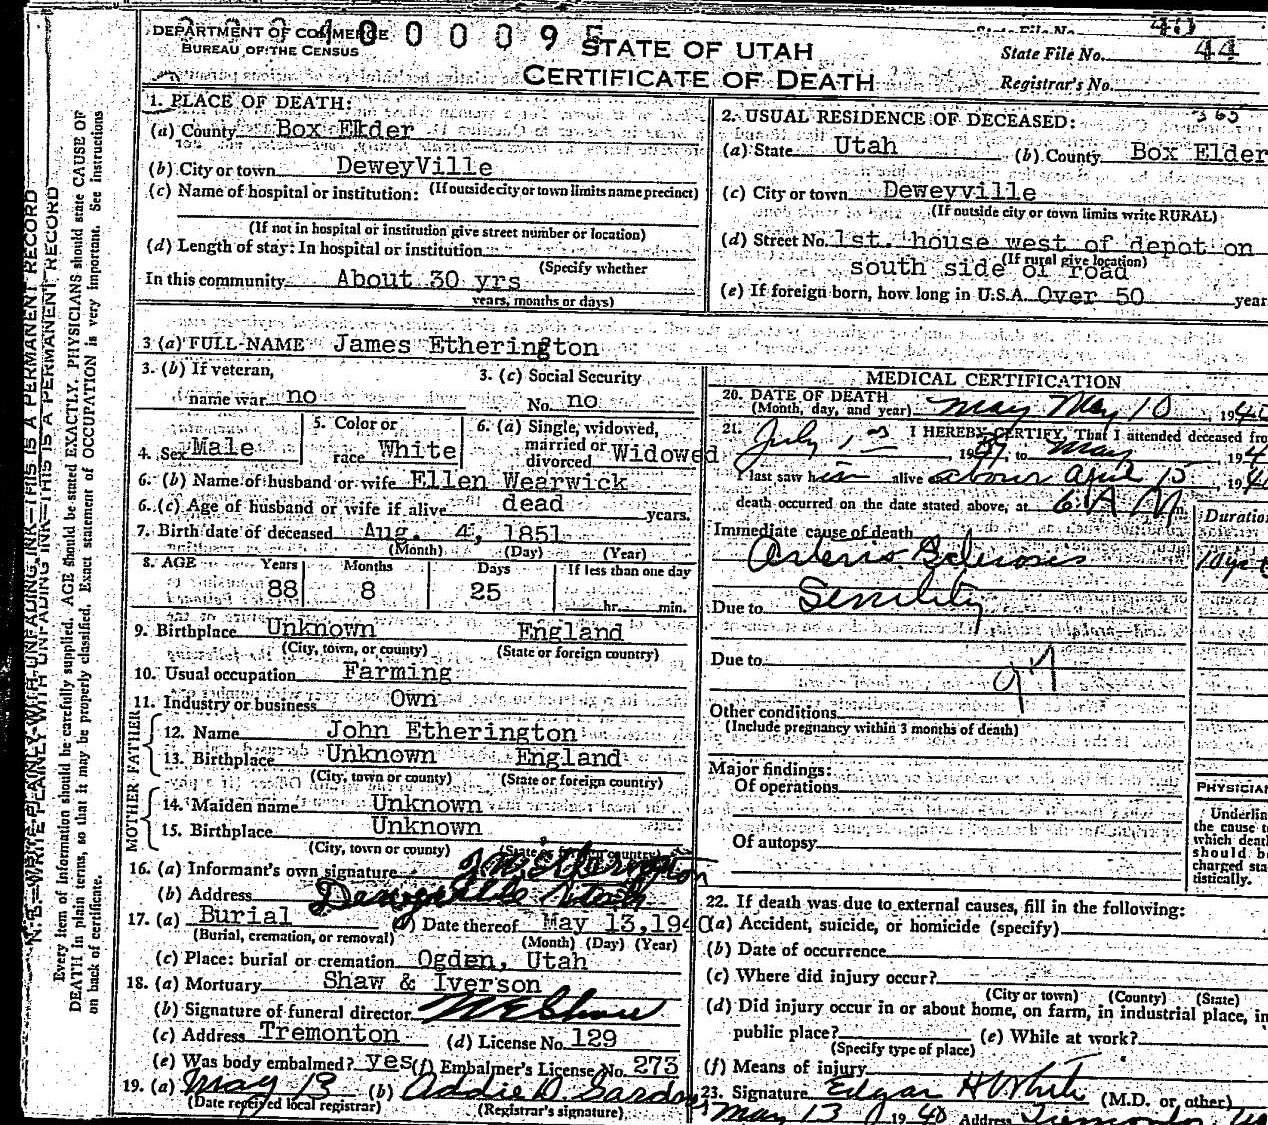 DEPARTMENT OF COMMERCE
BUREAU OF THE CENSUS
STATE OF UTAH
CERTIFICATE OF DEATH
State File No. 40
State File No. 44
Registrar's No.
365
N. B.—WRITE PLAINLY WITH UNFADING INK—THIS IS A PERMANENT RECORD
Every item of information should be carefully supplied. AGE should be stated EXACTLY. PHYSICIANS should state CAUSE OF
DEATH in plain terms, so that it may be properly classified. Exact statement of OCCUPATION is very important. See instructions
on back of certificate.
1. PLACE OF DEATH:
(a) County Box Elder
(b) City or town DeweyVille
(If outside city or town limits name precinct)
(c) Name of hospital or institution:
(If not in hospital or institution give street number or location)
(d) Length of stay: In hospital or institution
(Specify whether
In this community About 30 yrs
years, months or days)
2. USUAL RESIDENCE OF DECEASED:
(a) State Utah (b) County Box Elder
(c) City or town Deweyville
(If outside city or town limits write RURAL)
(d) Street No. 1st. house west of depot on
(If rural give location)
south side of road
(e) If foreign born, how long in U.S.A. Over 50 year
3 (a) FULL NAME James Etherington
3. (b) If veteran,
name war no
3. (c) Social Security
No. no
4. Sex Male
5. Color or
race White
6. (a) Single, widowed,
married or
divorced Widowed
6. (b) Name of husband or wife Ellen Wearwick
6. (c) Age of husband or wife if alive dead years.
7. Birth date of deceased Aug. 4, 1851
(Month) (Day) (Year)
8. AGE Years Months Days If less than one day
88 8 25 hr. min.
9. Birthplace Unknown England
(City, town, or county) (State or foreign country)
10. Usual occupation Farming
11. Industry or business Own
FATHER
12. Name John Etherington
13. Birthplace Unknown England
(City, town or county) (State or foreign country)
MOTHER
14. Maiden name Unknown
15. Birthplace Unknown
(City, town or county) (State or foreign country)
16. (a) Informant's own signature J. M. Etherington
(b) Address Deweyville Utah
17. (a) Burial (b) Date thereof May 13, 1940
(Burial, cremation, or removal) (Month) (Day) (Year)
(c) Place: burial or cremation Ogden, Utah
18. (a) Mortuary Shaw & Iverson
(b) Signature of funeral director M E Shaw
(c) Address Tremonton (d) License No. 129
(e) Was body embalmed? yes (f) Embalmer's License No. 273
19. (a) May 13 (b) Addie D.
(Date received local registrar) (Registrar's signature)
MEDICAL CERTIFICATION
20. DATE OF DEATH
(Month, day, and year) May May 10, 1940
21. I HEREBY CERTIFY, That I attended deceased fro
July 1st, 19 to May, 194
I last saw him alive about April 15, 194
death occurred on the date stated above, at 6 A M m.
Duration
Immediate cause of death
Arterio Sclerosis 10 yrs
Due to Senility
Due to
97
Other conditions
(Include pregnancy within 3 months of death)
Major findings:
Of operations
Of autopsy
PHYSICIAN
Underlin
the cause t
which deat
should b
charged sta
tistically.
22. If death was due to external causes, fill in the following:
(a) Accident, suicide, or homicide (specify)
(b) Date of occurrence
(c) Where did injury occur?
(City or town) (County) (State)
(d) Did injury occur in or about home, on farm, in industrial place, in
public place? (e) While at work?
(Specify type of place)
(f) Means of injury
23. Signature Edgar H White (M.D. or other)
May 13 1940 Address Tremonton